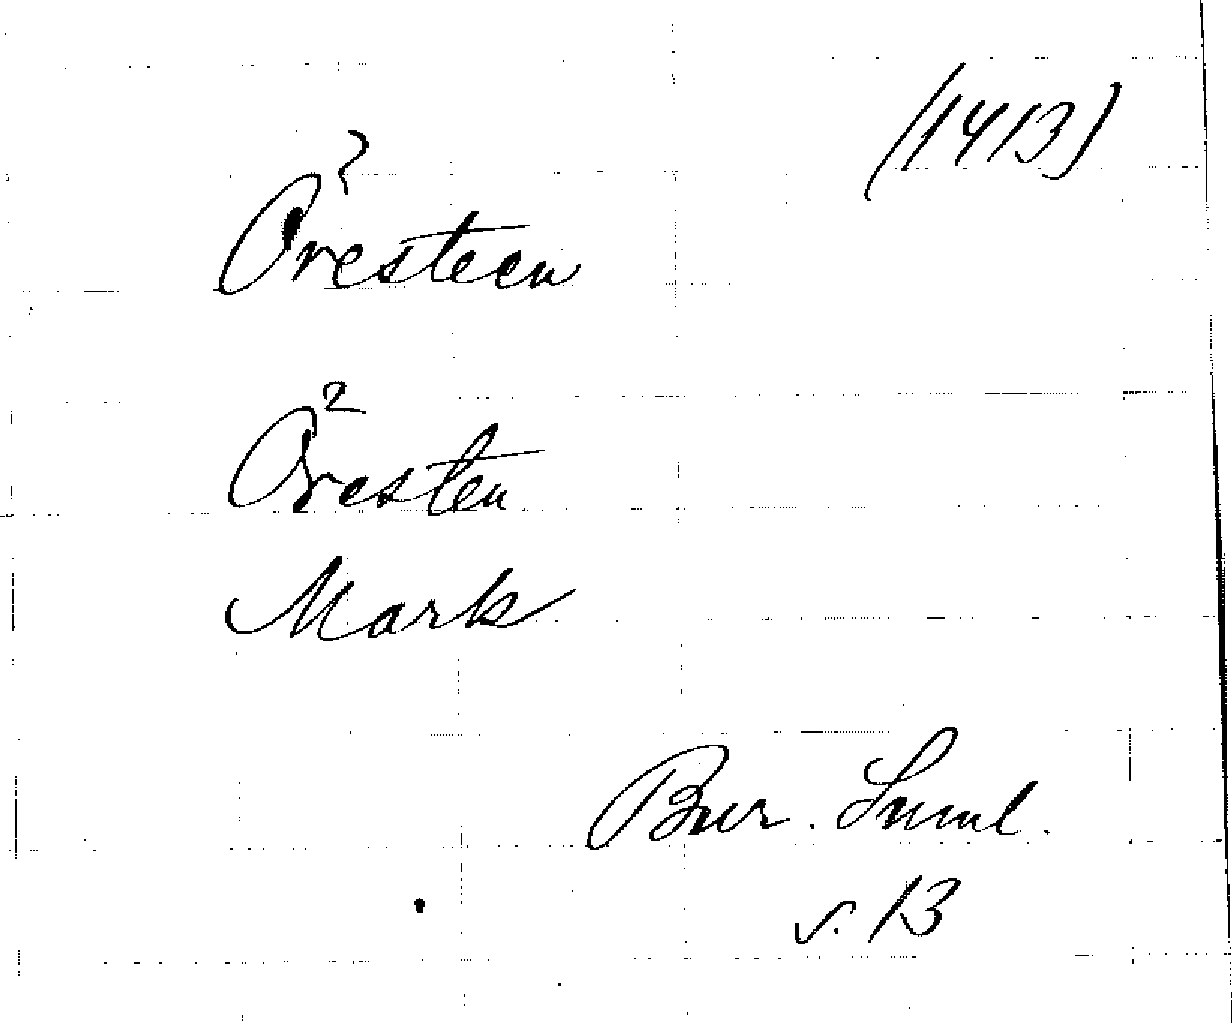 (1413)
?
Oresteen
2
Oresten
Mark
Bur. Suml.
s. 13